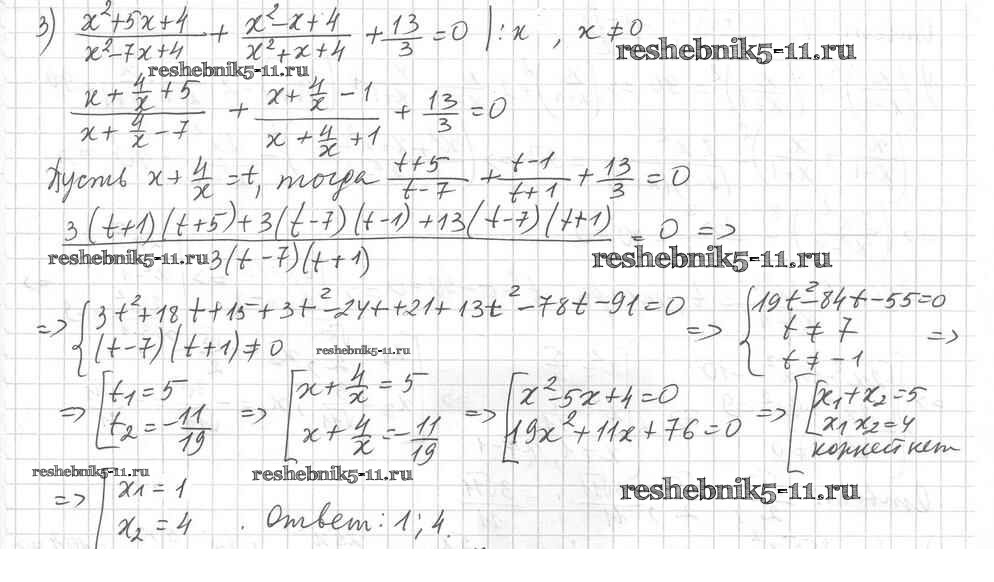 3) (x²+5x+4)/(x²-7x+4) + (x²-x+4)/(x²+x+4) + 13/3 = 0 | :x , x ≠ 0
reshebnik5-11.ru
reshebnik5-11.ru
(x + 4/x + 5)/(x + 4/x - 7) + (x + 4/x - 1)/(x + 4/x + 1) + 13/3 = 0
Пусть x + 4/x = t, тогда (t+5)/(t-7) + (t-1)/(t+1) + 13/3 = 0
(3(t+1)(t+5)+3(t-7)(t-1)+13(t-7)(t+1))/(3(t-7)(t+1)) = 0 =>
reshebnik5-11.ru
reshebnik5-11.ru
=> { 3t²+18t+15+3t²-24t+21+13t²-78t-91=0 => { 19t²-84t-55=0
(t-7)(t+1) ≠ 0 t ≠ 7 =>
t ≠ -1
reshebnik5-11.ru
=> [ t₁ = 5 => [ x + 4/x = 5 => [ x²-5x+4=0 => [ x₁+x₂=5
t₂ = -11/19 x + 4/x = -11/19 19x²+11x+76=0 x₁x₂=4
корней нет
reshebnik5-11.ru
reshebnik5-11.ru
reshebnik5-11.ru
=> [ x₁ = 1
x₂ = 4 . Ответ: 1; 4.